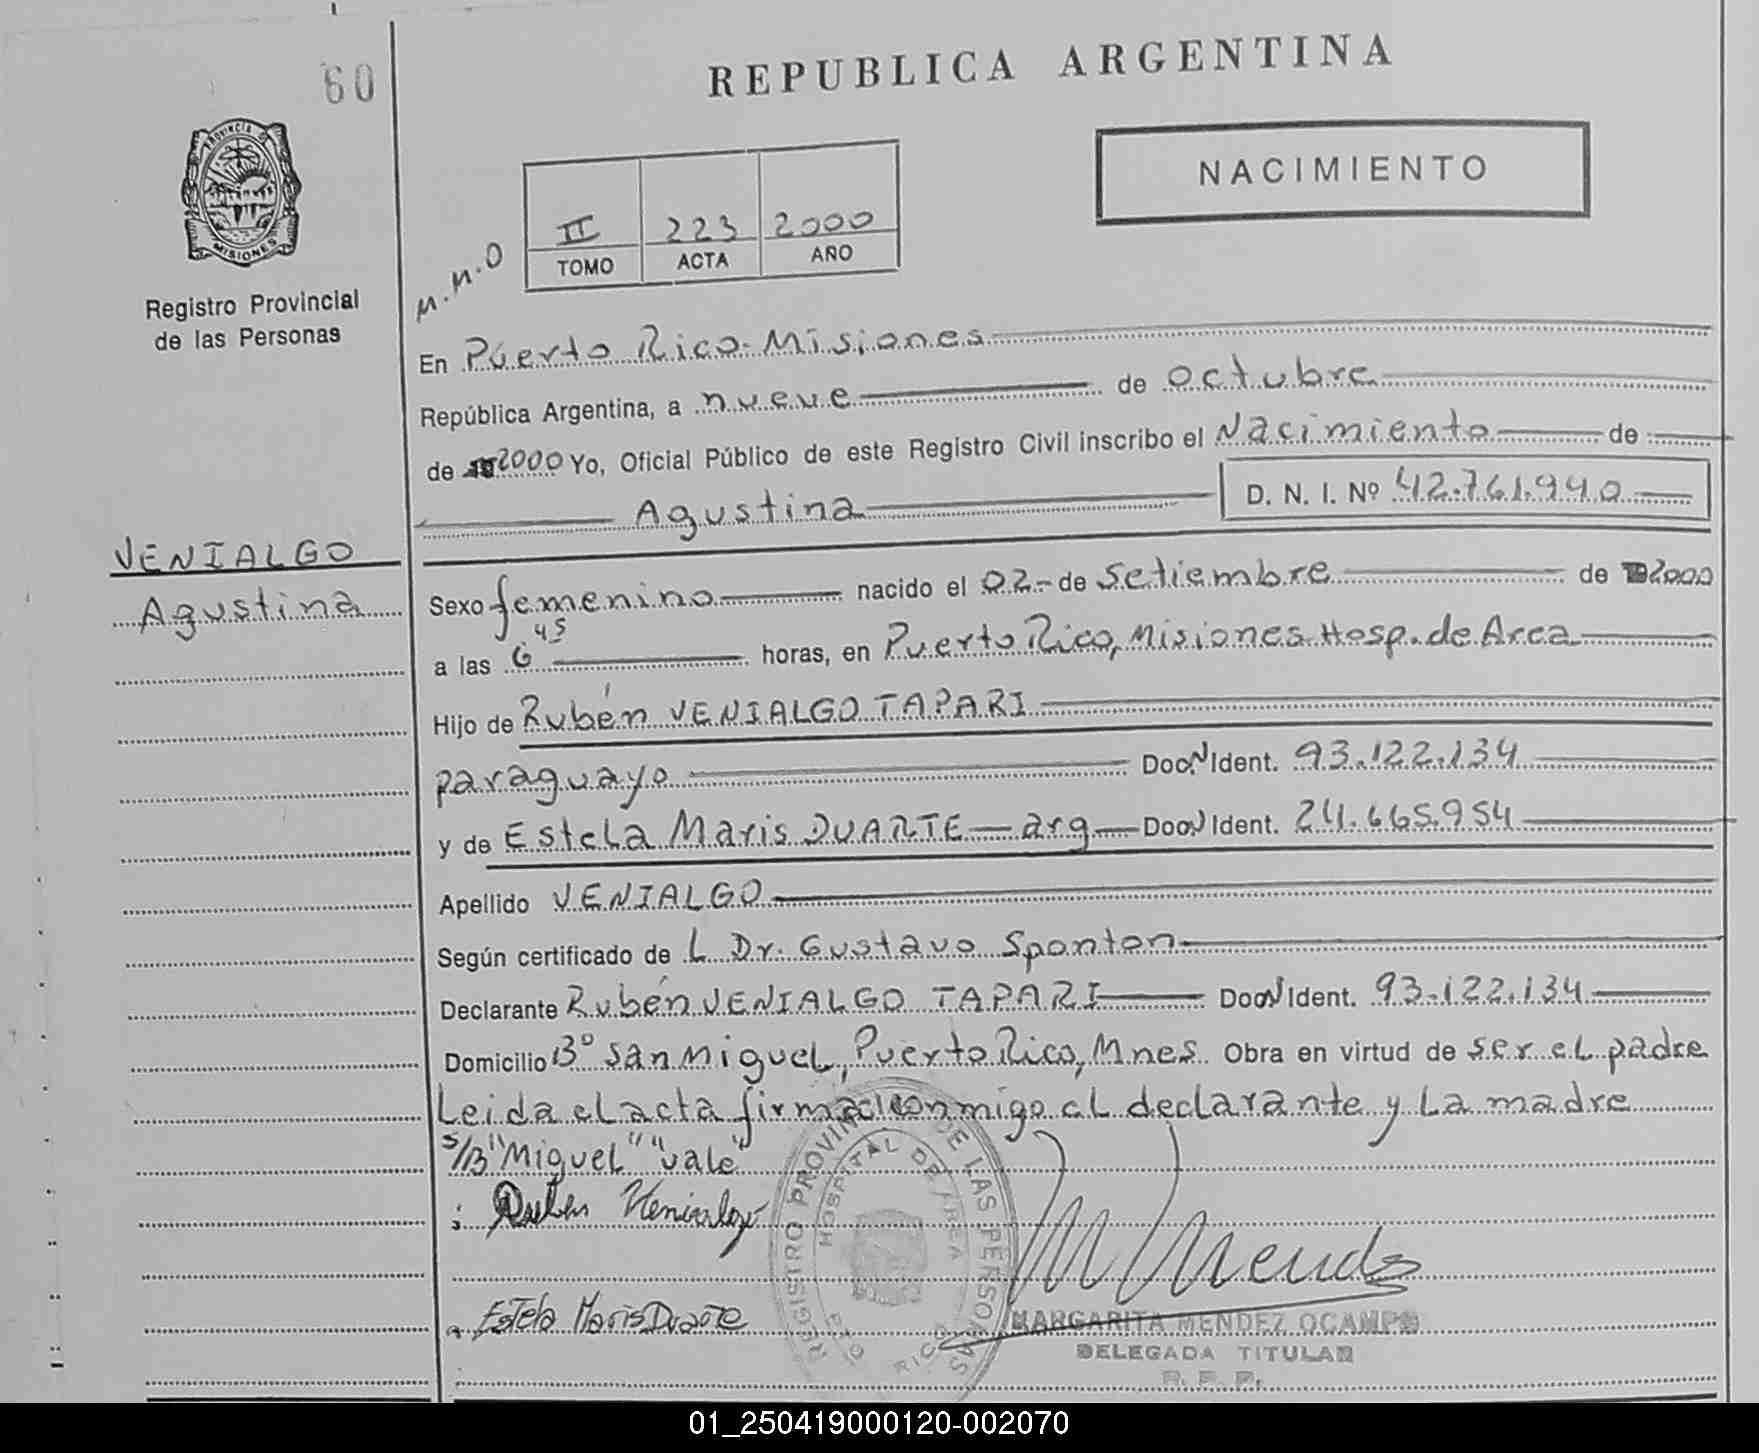 60
REPUBLICA ARGENTINA
NACIMIENTO
PROVINCIA DE
MISIONES
Registro Provincial
de las Personas
M.M.O
II 223 2000
TOMO ACTA AÑO
En Puerto Rico-Misiones
República Argentina, a nueve de octubre
de 2000 Yo, Oficial Público de este Registro Civil inscribo el Nacimiento de
Agustina D. N. I. Nº 42.761.990
VENIALGO
Agustina
Sexo femenino nacido el 02- de Setiembre de 2000
a las 6 45 horas, en Puerto Rico, Misiones-Hosp. de Area
Hijo de Rubén VENIALGO TAPARI
paraguayo Doc. N Ident. 93.122.134
y de Estela Maris DUARTE — arg — Doc. N Ident. 24.665.954
Apellido VENIALGO
Según certificado de L Dr. Gustavo Sponton
Declarante Rubén VENIALGO TAPARI Doc. N Ident. 93.122.134
Domicilio Bº San Miguel, Puerto Rico, Mnes. Obra en virtud de ser el padre
Leida el acta firman conmigo el declarante y La madre
S/B "Miguel" "vale"
Ruben Venialgo
Estela Maris Duarte
REGISTRO PROVINCIAL DE LAS PERSONAS
HOSPITAL DE AREA
PTO RICO
M Mendez
MARGARITA MENDEZ OCAMPO
DELEGADA TITULAR
R. P. P.
01_250419000120-002070